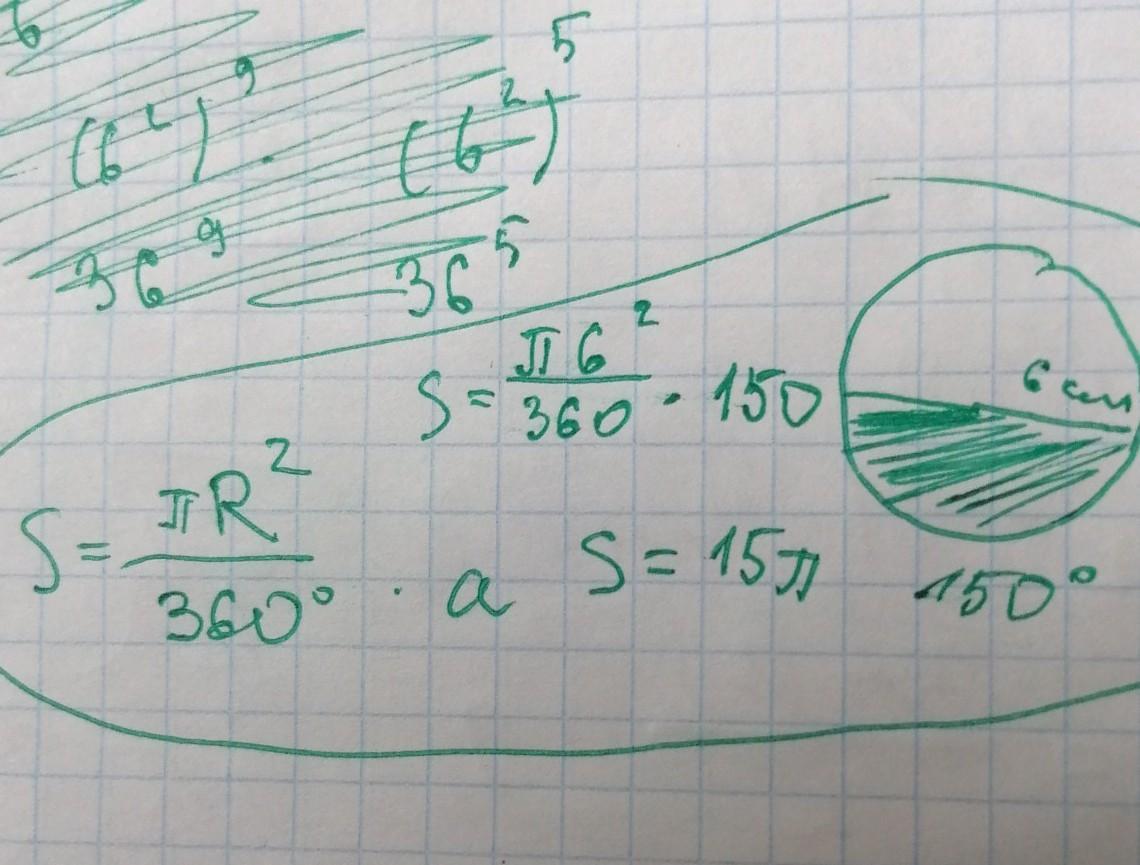 6
(6²)⁹ · (6²)⁵
36⁹ 36⁵
S = π6²/360 · 150
6 см
S = πR²/360° · a
S = 15π
150°